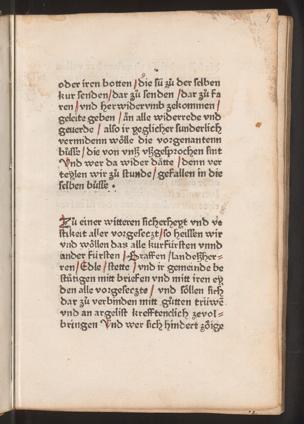 oder iren botten / die sū zů der selben
kur senden / dar zů senden / dar zů fa
ren / vnd herwidervmb zekommen /
geleite geben / ān alle widerrede vnd
geuerde / also ir yeglicher sunderlich
vermidenn wölle die vorgenantenn
bůsse / die von vnß vßgesprochen sint
Vnd wer da wider dātte / denn ver
teylen wir zů stunde / gefallen in die
selben bůsse .
Zů einer witteren sicherheyt vnd ve
stikeit aller vorgesezt / so heissen wir
vnd wöllen das alle kurfürsten vnnd
ander fürsten / Graffen / landeßher-
ren / Edle / stette / vnd ir gemeinde be
stūngen mitt brieffen vnd mitt iren ey
den alle vorgesezte / vnd söllen sich
dar zů verbinden mitt gůtten trüwē
vnd an argelist krefftenclich zevol-
bringen Vnd wer sich hindert zöige